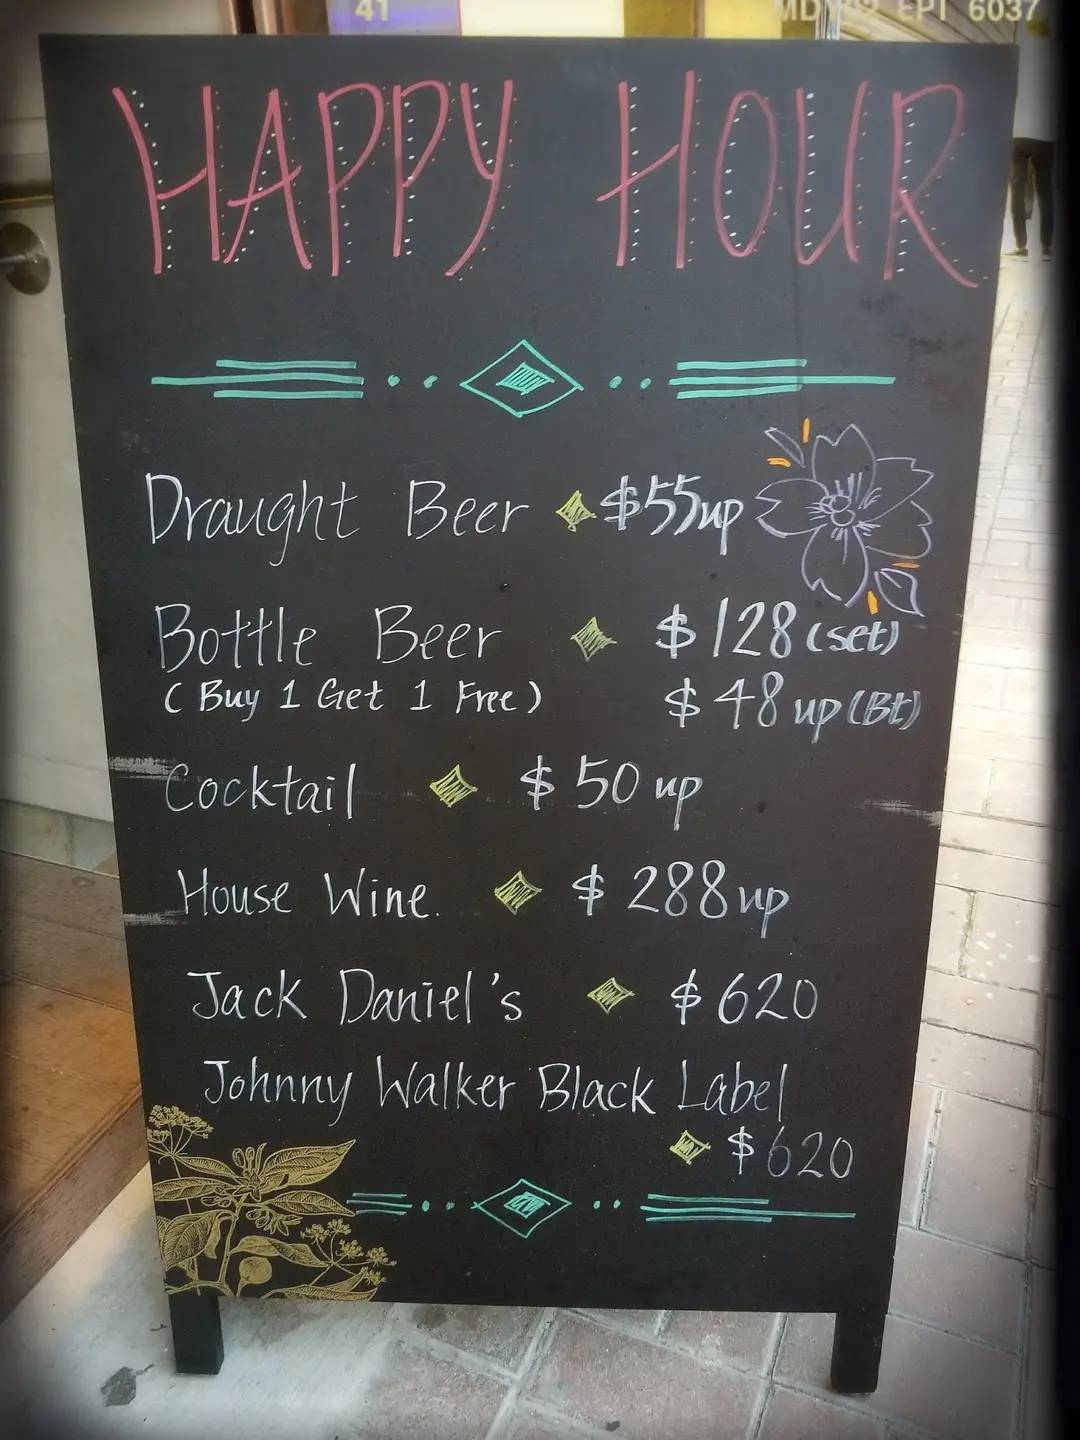 41
6037
HAPPY HOUR
Draught Beer $55up
Bottle Beer $128 (set)
(Buy 1 Get 1 Free) $48 up (Bt)
Cocktail $50 up
House Wine. $288up
Jack Daniel's $620
Johnny Walker Black Label
$620